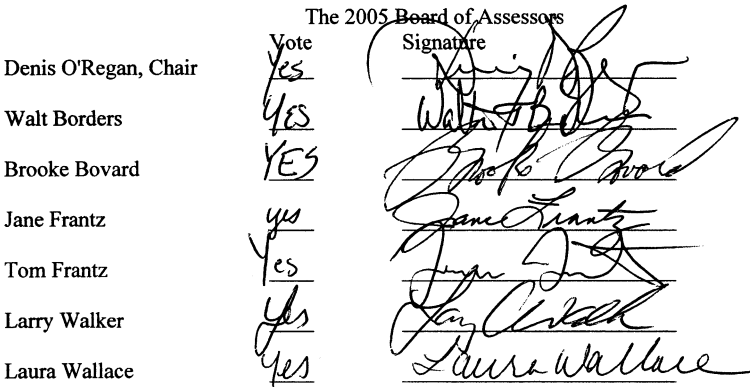 The 2005 Board of Assessors
Vote Signature
Denis O'Regan, Chair Yes
Walt Borders YES Walter Borders
Brooke Bovard YES Brooke Bovard
Jane Frantz yes Jane Frantz
Tom Frantz Yes
Larry Walker Yes Larry Walker
Laura Wallace Yes Laura Wallace